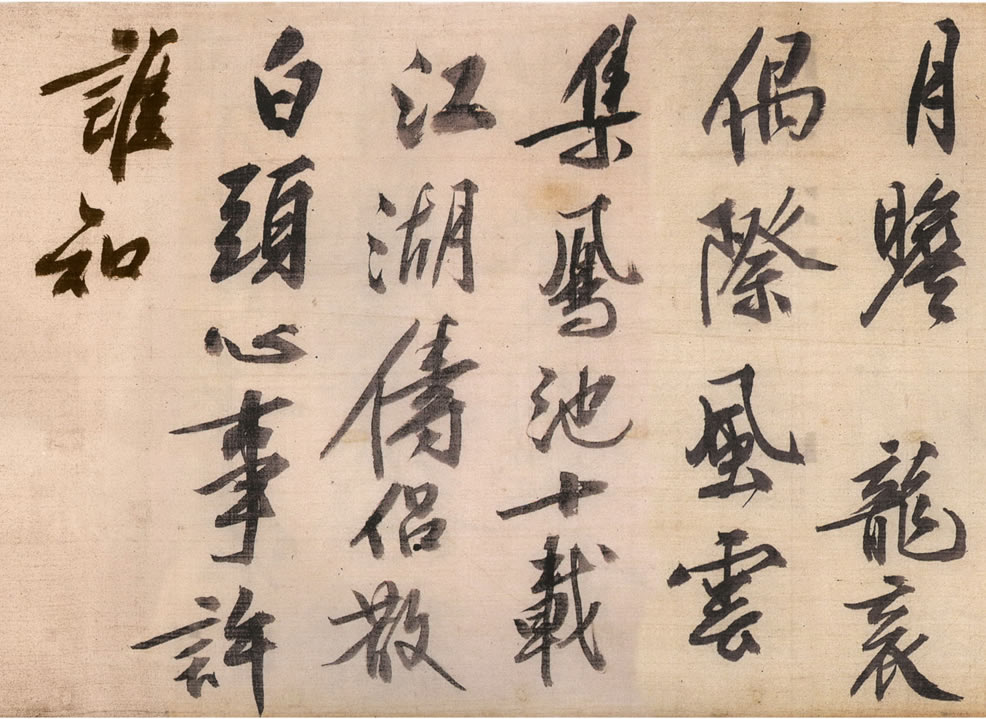 月瞻龍衮
偶際風雲
集鳳池十載
江湖儔侣散
白頭心事許
誰知